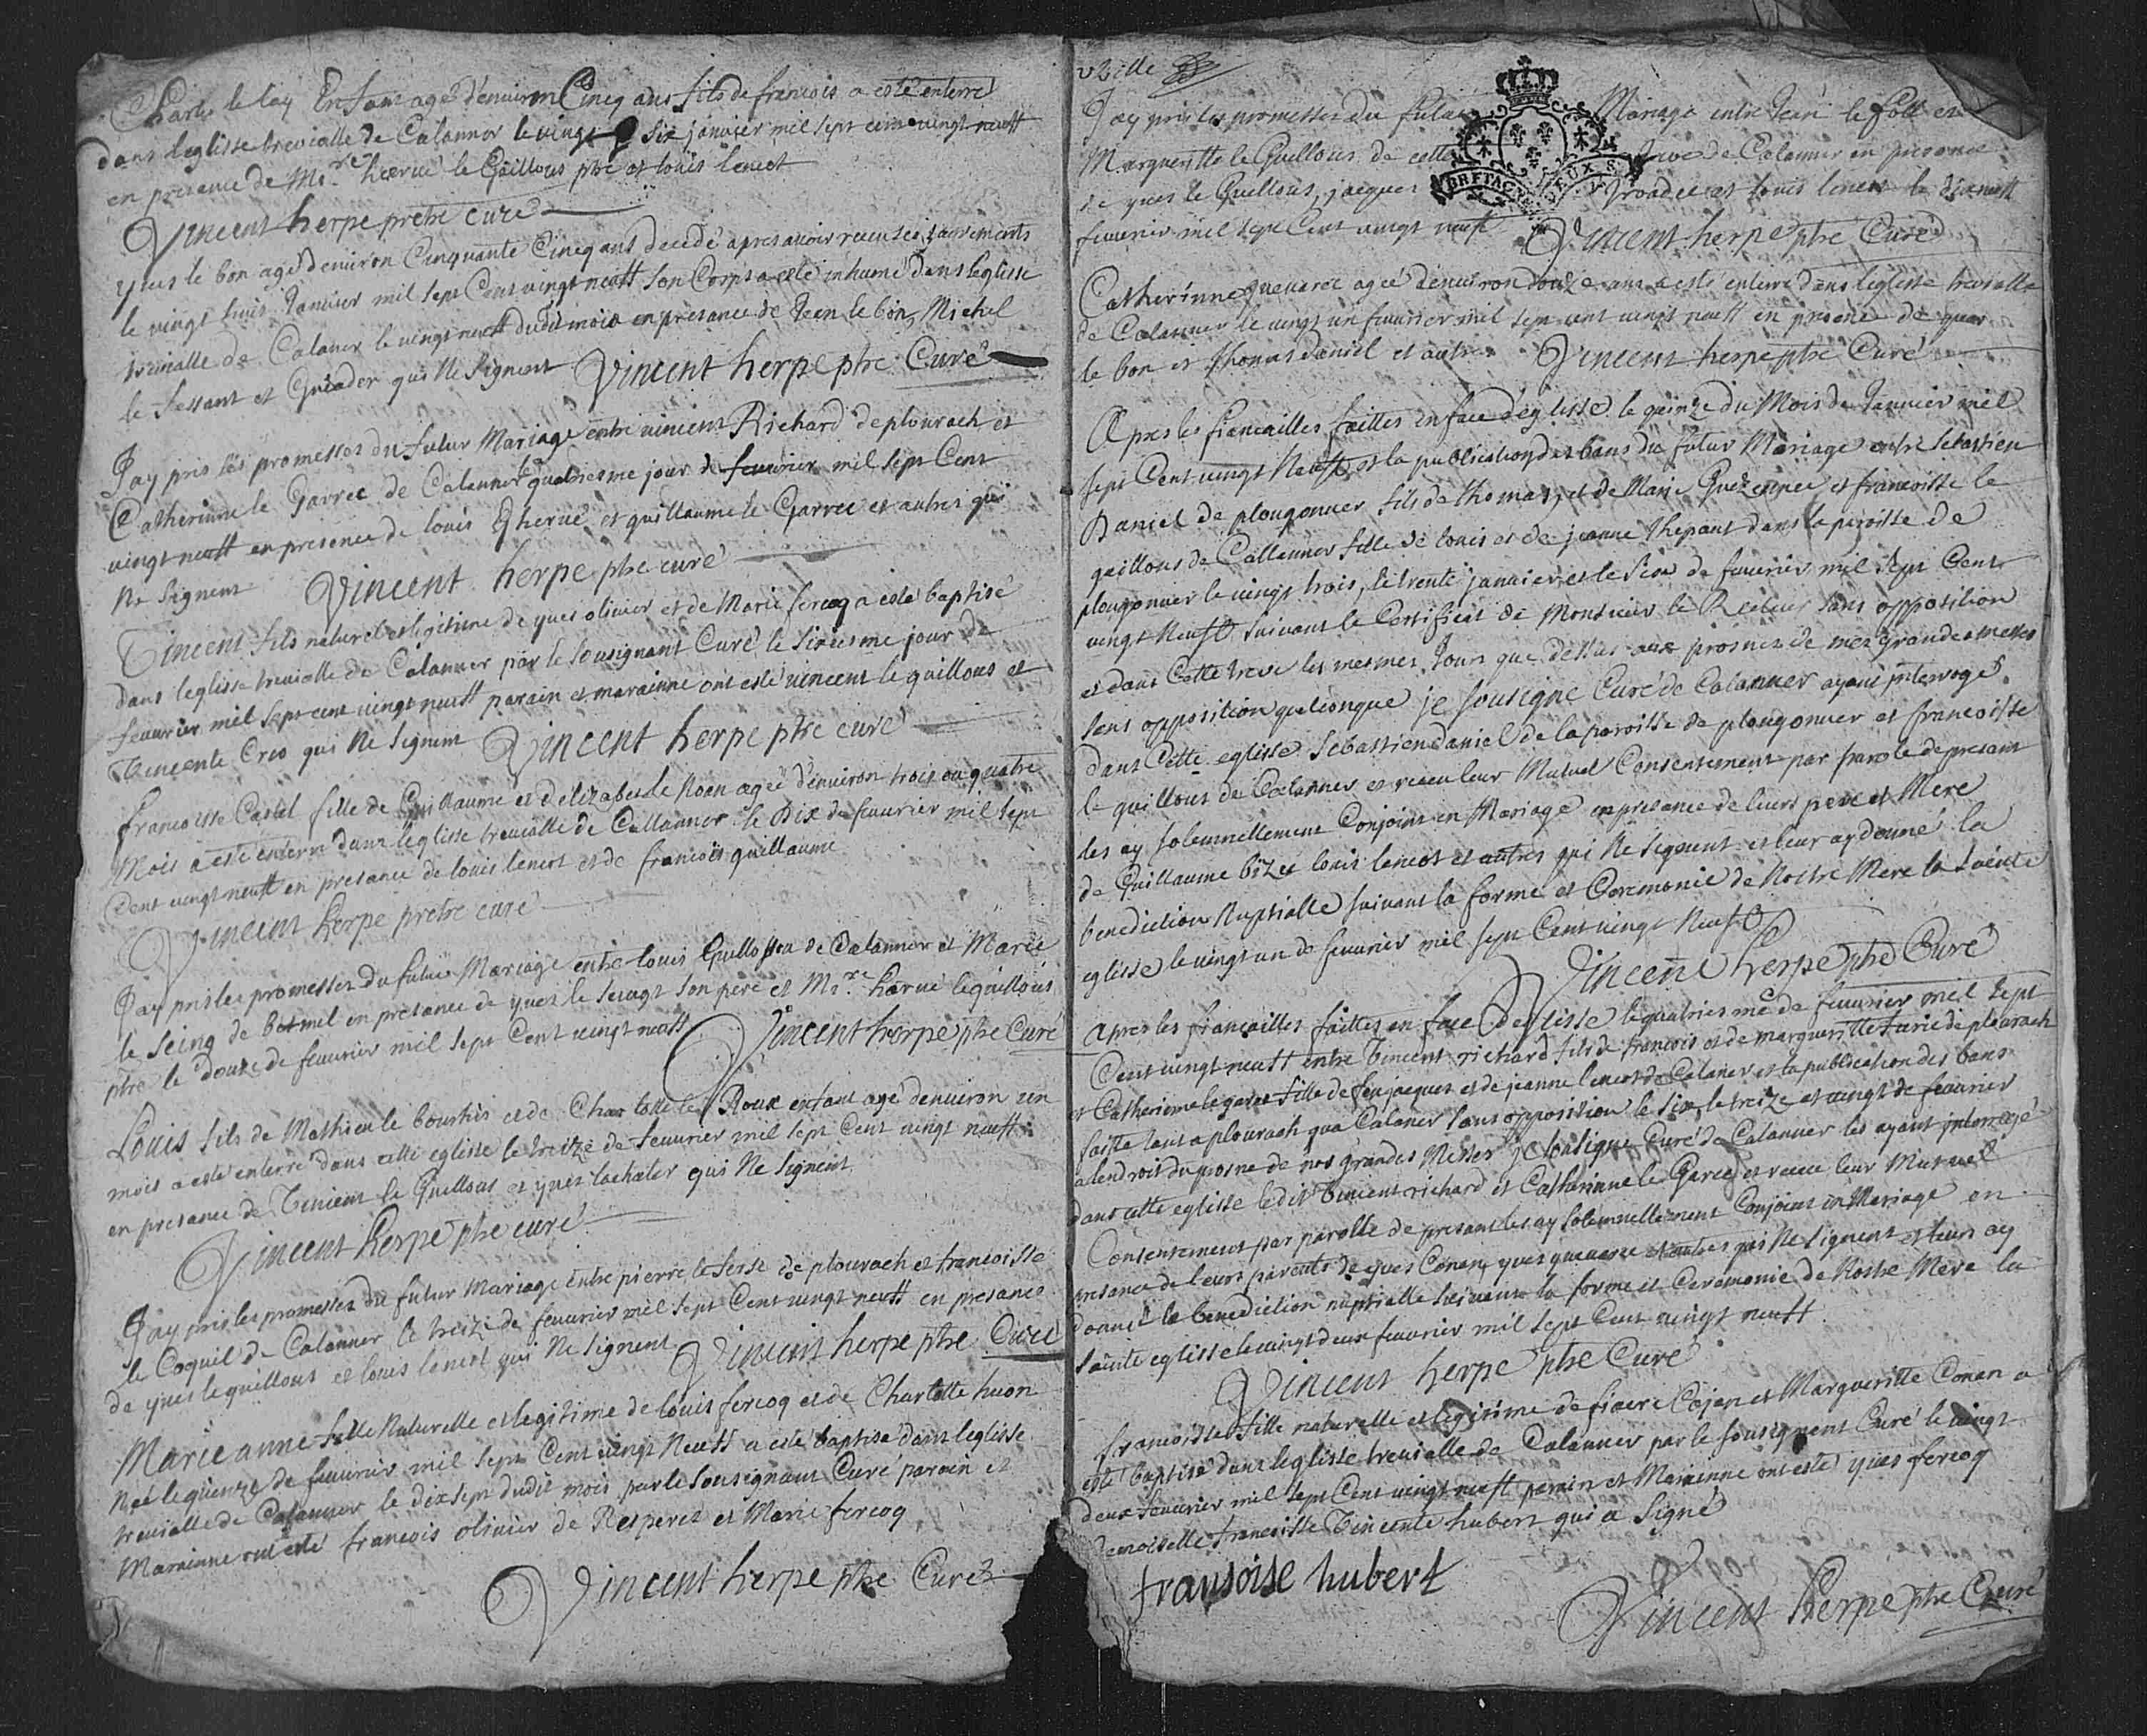 Charle le lay Enfant agé d'environ Cincq ans fils de francois a esté enterré
dans l'eglisse trevialle de Calanner le vingt Six janvier mil sept cent vingt neuft
en presance de Mre herué le Guillous ptre et louis leneot
Vincent herpe pretre curé
yves le bon agé d'environ Cinquante Cincq ans decedé apres avoir receu les sacrements
le vingt huis Janvier mil sept Cent vingt neuft Son Corps a esté inhumé dans leglisse
trevialle de Calaner le vingt neuft dudit mois en presance de Jean le bon, Michel
le fessant et Guiader qui Ne Signent Vincent herpe ptre Curé
J'ay pris les promesses du futur Mariage entre vincent Richard de plourach et
Catherinne le Garrec de Calanner le quatriesme jour de feuvrier mil sept Cent
vingt neuft en presence de louis Gherué et guillaume le Garrec et autres qui
Ne Signent Vincent herpe ptre curé
Vincent fils naturel et legitime de yves olivier et de Marie fercoq a esté baptisé
dans leglisse trevialle de Calanner par le Sousignant Curé le Sixiesme jour de
feuvrier mil sept cent vingt neuft parain et marainne ont esté vincent le guillous et
Vincente Creo qui Ne Signent Vincent herpe ptre curé
francoisse Castel fille de Guillaume et d'elizabet le Moan agée d'environ trois ou quatre
Mois a esté enterré dans l'eglisse trevialle de Callanner le Dix de feuvrier mil sept
Cent vingt neuft en presance de louis leneot et de francois guillaume
Vincent herpe pretre curé
J'ay pris les promesses du futur Mariage entre louis de Calanner et Marie
le Seing de botmel en presance de yves le Seingt Son pere et Mre herué le guillous
ptre le douze de feuvrier mil sept Cent vingt neuft Vincent herpe ptre Curé
Louis fils de Mathieu le bourhis et de Charlotte le Roux enfant agé d'environ un
mois a esté enterré dans cette eglisse le treize de feuvrier mil sept Cent vingt neuft
en presance de Vincent le Guillous et yves lachater qui Ne Signent
Vincent herpe ptre curé
J'ay pris les promesses du futur Mariage entre pierre le fersse de plourach et francoisse
le Coquil de Calanner le treize de feuvrier mil sept Cent vingt neuft en presance
de yves le guillous et louis leneot qui Ne Signent Vincent herpe ptre Curé
Marie anne fille Naturelle et legitime de louis fercoq et de Charlotte huon
Neé le quinze de feuvrier mil sept Cent vingt Neuft a esté baptisé dans leglisse
trevialle de Calanner le dix sept dudit mois par le Sousignant Curé parain et
Marainne ont esté francois olivier de Resperez et Marie fercoq
Vincent herpe ptre Curé
J'ay pris les promesses du futur Mariage entre Jean le foll et
Margueritte le Guillous de cette treve de Calanner en presance
de yves le Guillous, jacques et louis leneot le dix neuft
feuvrier mil sept Cent vingt neuft Vincent herpe ptre Curé
BRETAGNE DEUX S
Catherinne queuarec ageé d'environ douze ans a esté enterré dans leglisse trevialle
de Calanner le vingt un feuvrier mil sept cent vingt neuft en presence de yves
le bon et thomas daniel et autres Vincent herpe ptre Curé
Apres les fiancailles faittes en face d'eglisse le quinze du Mois de Janvier mil
sept Cent vingt Neuft et la publication des bans du futur Mariage entre Sebastien
Daniel de plougonver fils de thomas et de Marie Guezennec et francoisse le
guillous de Callanner fille de louis et de jeanne thepaut dans la paroisse de
plougonver le vingt trois, le trente janvier et le Six de feuvrier mil Sept Cent
vingt Neuft suivant le Certificat de Monsieur le Recteur sans opposition
et dans Cette treve les mesmes Jours que dessus aux prosnes de mes grandes messes
sans opposition quelconque je sousigné Curé de Calanner ayant jnterrogé
dans Cette eglisse Sebastien daniel de la paroisse de plougonver et francoisse
le guillous de Calanner et receu leur Mutuel Consentement par parole de presant
les ay solemnellement Conjoint en Mariage en presance de leurs pere et Mere
de Guillaume bizec louis leneot et autres qui Ne Signent et leur ay donné la
benediction Nuptialle suivant la forme et Ceremonie de Nostre Mere la Sainte
eglisse le vingt un de feuvrier mil sept Cent vingt Neuft
Vincent herpe ptre Curé
apres les fiancailles faittes en face d'eglisse le quatriesme de feuvrier mil sept
Cent vingt neuft entre Vincent richard fils de francois et de margueritte de plourach
et Catherinne le garec fille de feu jacques et de jeanne leneot de Calaner et la publication des bans
faitte tant a plourach qua Calaner sans opposition le six, le treize et vingt de feuvrier
a lendroit du prosne de nos grandes Messes je sousigné Curé de Calanner les ayant jnterrogé
dans cette eglisse ledit Vincent richard et Catherinne le Garec et receu leur Mutuel
Consentement par parolle de presant les ay Solemnellement Conjoint en Mariage en
presance de leurs parents de yves Conan, yves queuarec et autres qui Ne Signent et leurs ay
donné la benediction nuptialle suivant la forme et Ceremonie de Nostre Mere la
Sainte eglisse le vingt deux feuvrier mil sept Cent vingt neuft
Vincent herpe ptre Curé
francoisse fille naturelle et legitime de fiacre Cojan et Margueritte Conan a
esté baptisé dans leglisse treviale de Calanner par le sousignent Curé le vingt
deux feuvrier mil sept Cent vingt neuft parain et Marainne ont esté yves fercoq
Demoiselle francoisse Vincente hubert qui a Signé
fransoise hubert
Vincent herpe ptre Curé